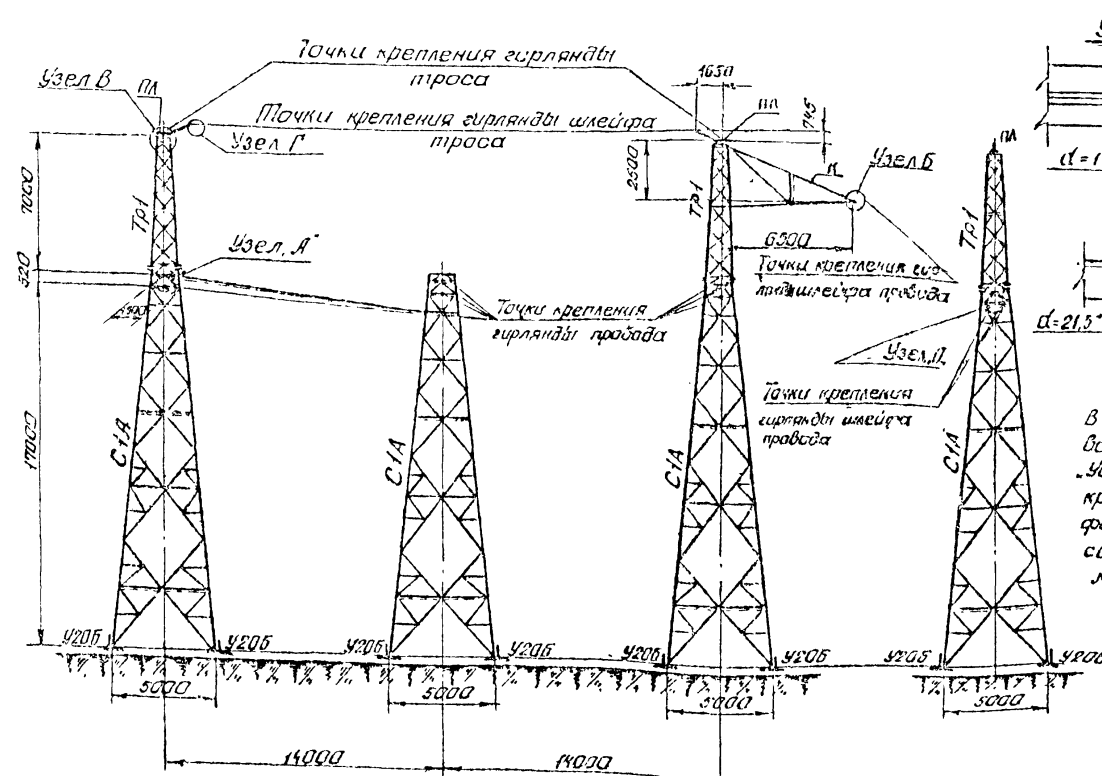 Точки крепления гирлянды
троса
Узел В
ПЛ
Точки крепления гирлянды шлейфа
троса
Узел Г
1650
ПЛ
745
Узел Б
К
2500
6500
ПЛ
d=1
7000
Тр1
Тр1
Тр1
520
Узел „А"
Точки крепления
гирлянды провода
Точки крепления
шлейфа провода
d=21,5
Узел „Д
Точки крепления
гирлянды шлейфа
провода
17000
С1А
С1А
С1А
С1А
В
кр
У20Б
У20Б
У20Б
У20Б
У20Б
У20Б
У20Б
У20Б
5000
5000
5000
5000
14000
14000